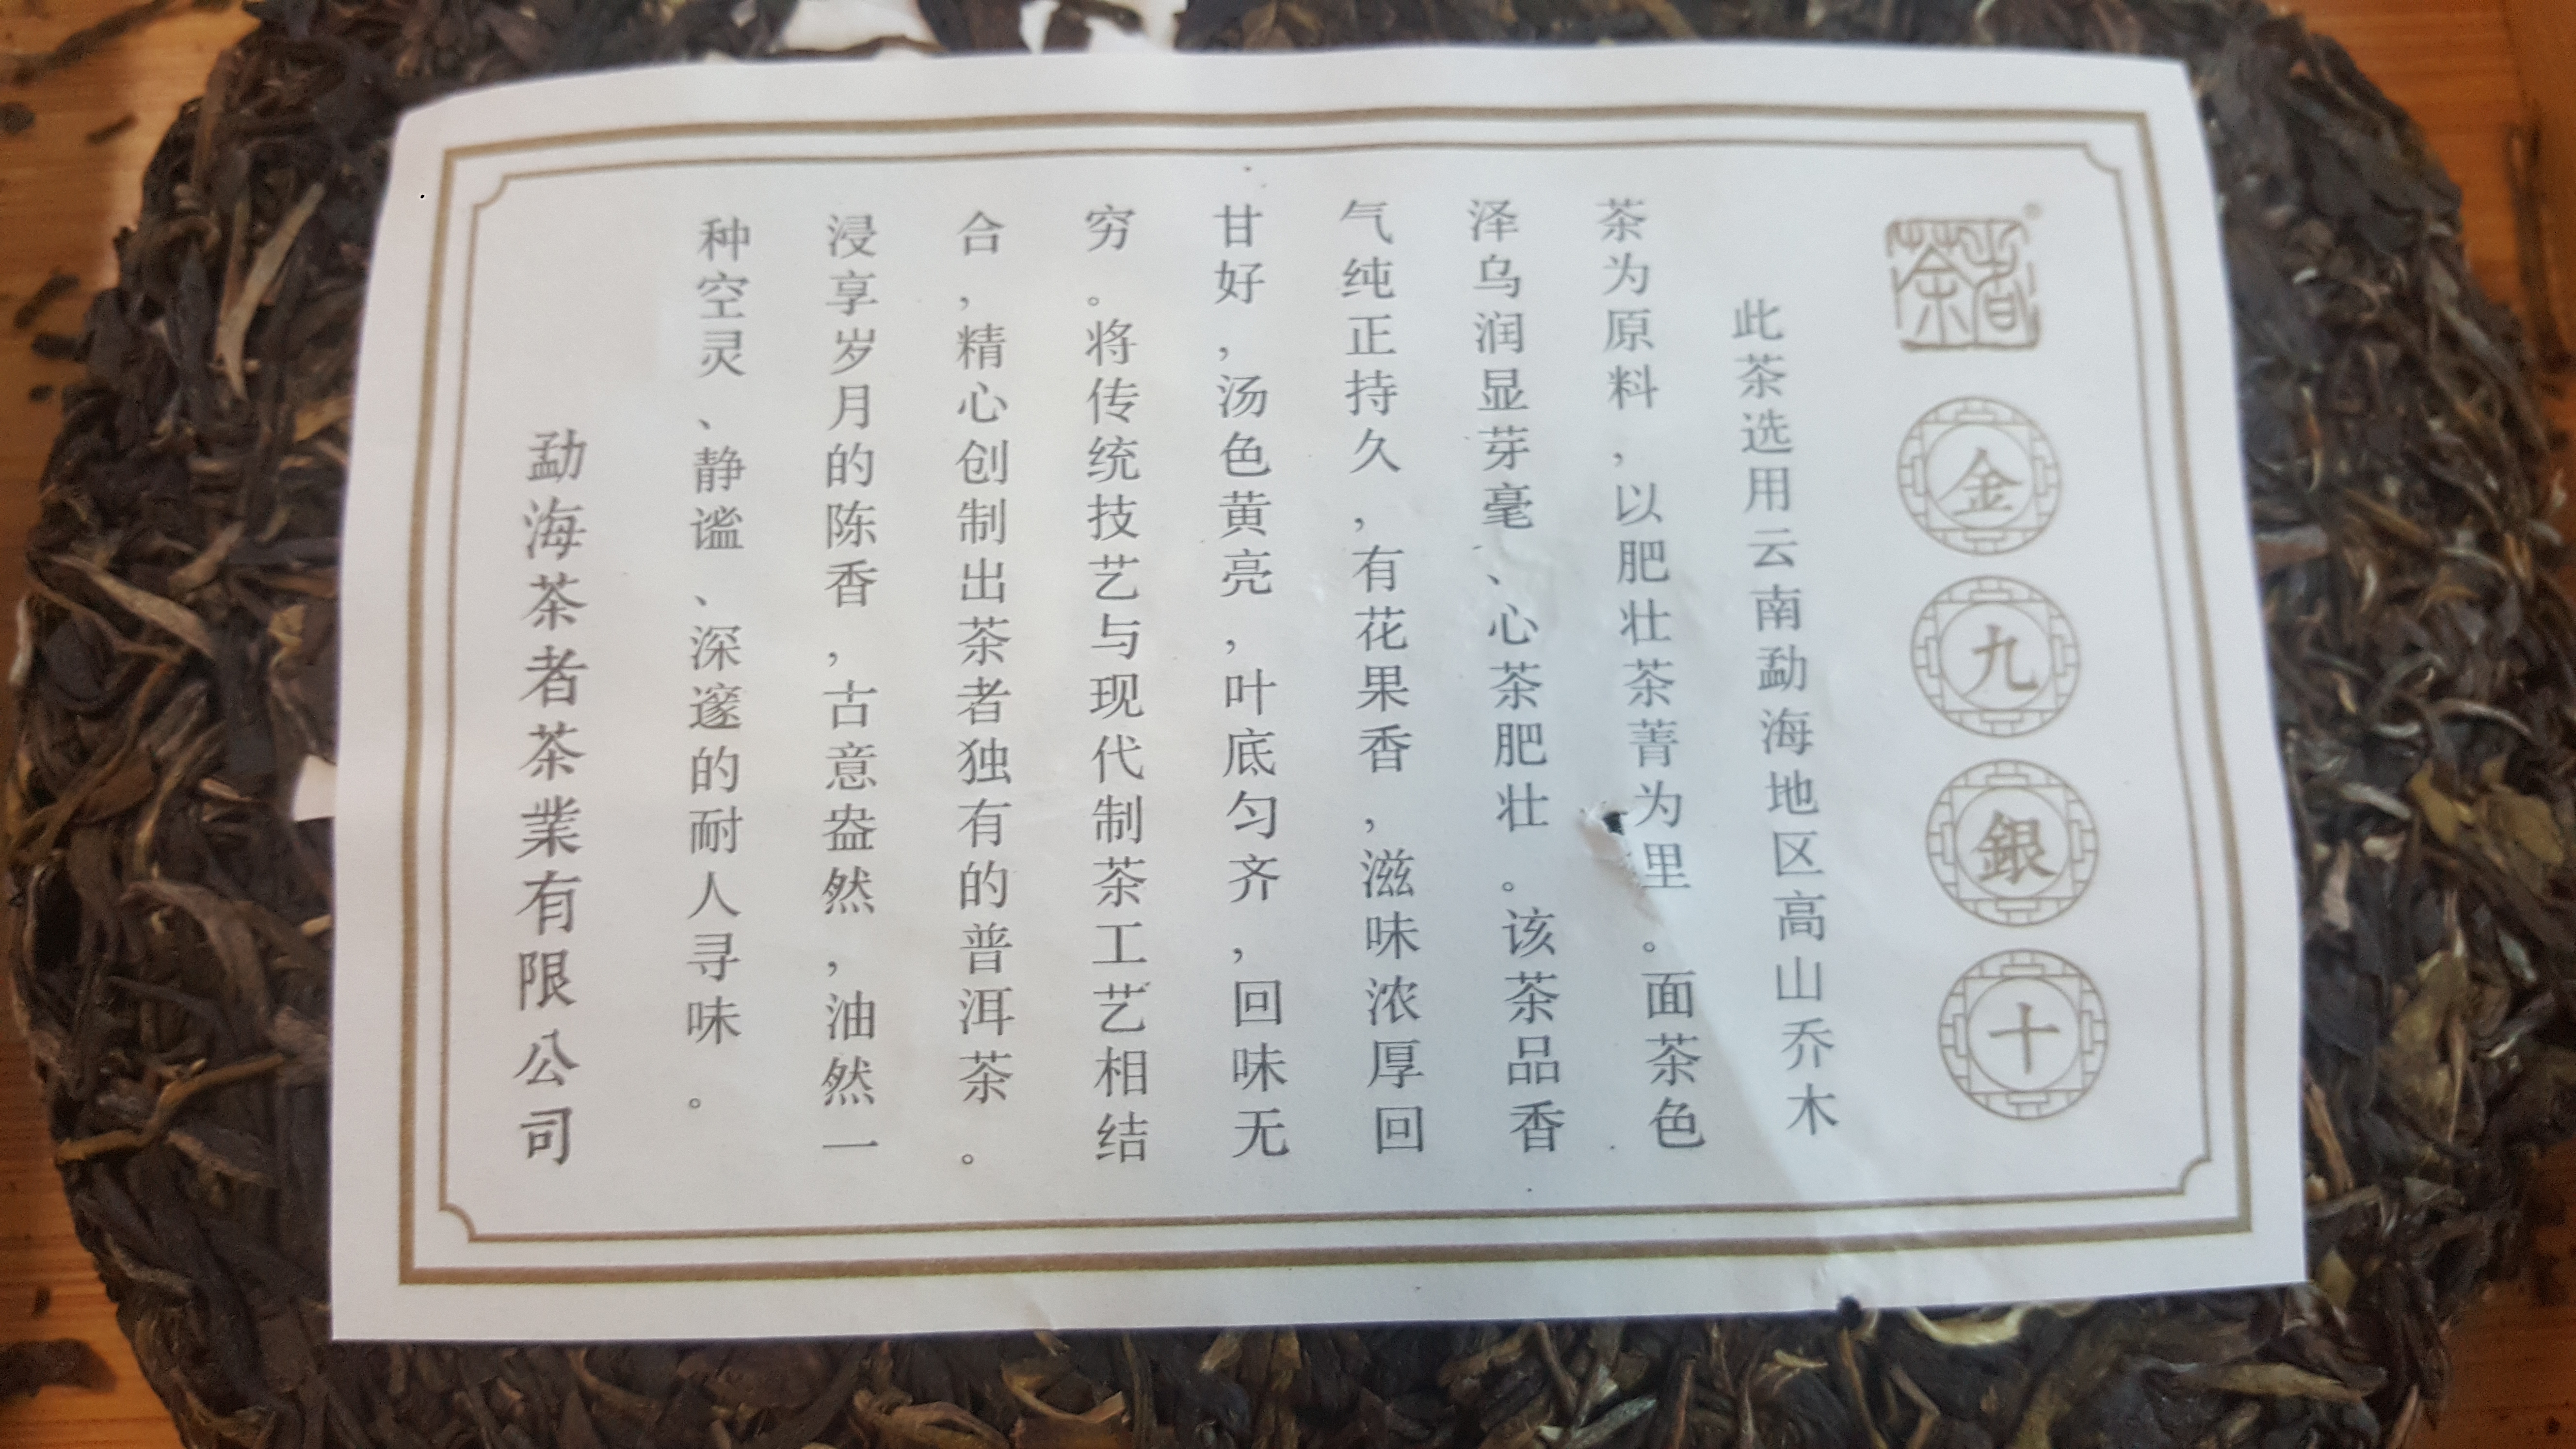 茶者
金九銀十
此茶选用云南勐海地区高山乔木
茶为原料，以肥壮茶菁为里。面茶色
泽乌润显芽毫、心茶肥壮。该茶品香
气纯正持久，有花果香，滋味浓厚回
甘好，汤色黄亮，叶底匀齐，回味无
穷。将传统技艺与现代制茶工艺相结
合，精心创制出茶者独有的普洱茶。
浸享岁月的陈香，古意盎然，油然一
种空灵、静谧、深邃的耐人寻味。
勐海茶者茶業有限公司